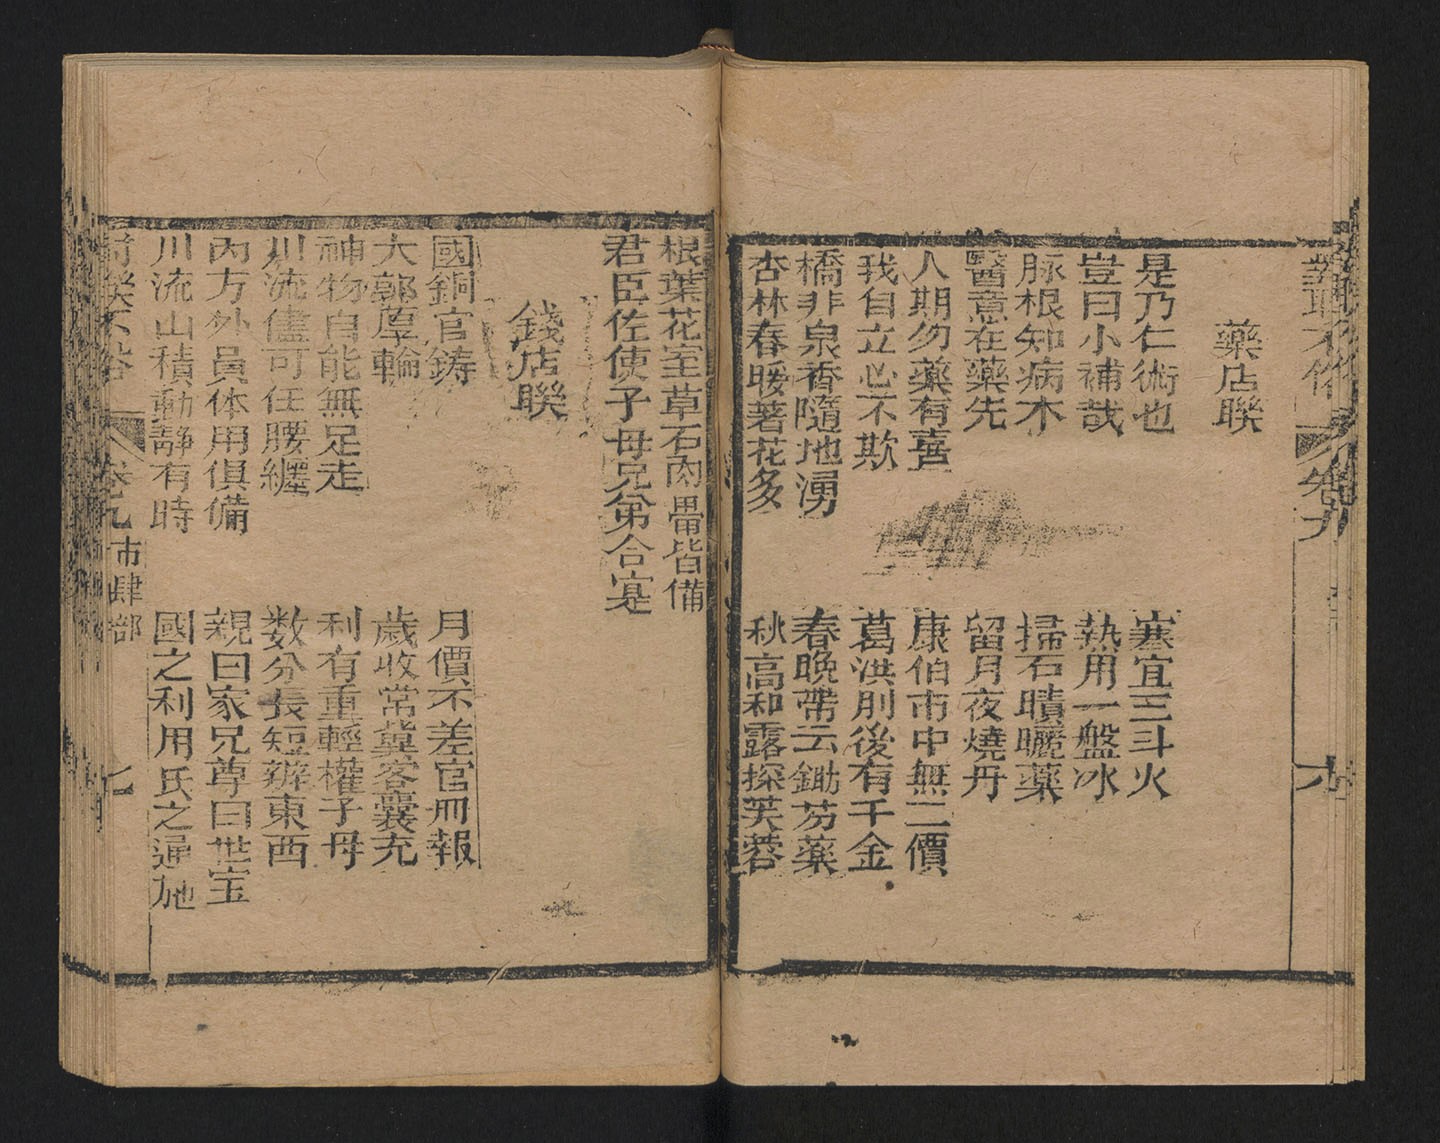 藥店聯
是乃仁術也 寒宜三斗火
豈曰小補哉 熱用一盤冰
脉根知病木 掃石晴曬藥
醫意在藥先 留月夜燒丹
人期勿藥有喜 康伯市中無二價
我自立心不欺 葛洪肘後有千金
橋非泉香隨地湧 春晚帶云鋤芴藥
杏林春暖著花多 秋高和露探芙蓉
根葉花室草石肉畧皆備
君臣佐使子母兄弟合寔
錢店聯
國銅官鋳 月價不差官冊報
大郭厚輪 歲收常冀客囊充
神物自能無足走 利有重輕權子母
川流儘可任腰纏 数分長短辦東西
內方外員体用俱備 親曰家兄尊曰世宝
川流山積動靜有時 國之利用氏之通施
卷九 市肆部 七